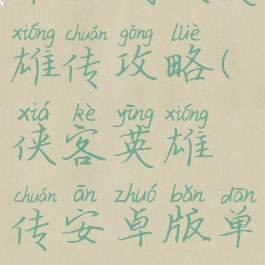 xióng chuán gōng lüè
雄传攻略(
xiá kè yīng xióng
侠客英雄
chuán ān zhuó bǎn dān
传安卓版单